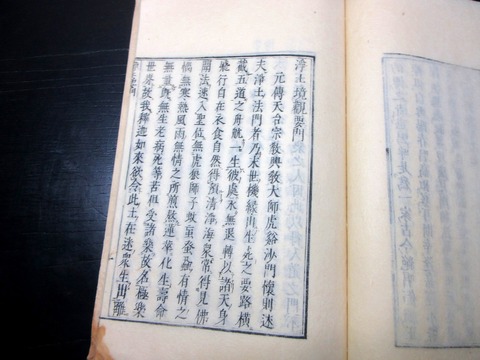 淨土境觀要門
元傳天台宗教興教大師虎谿沙門懷則述
夫淨土法門者乃末世機緣出生死之要路橫
截五道之舟航一生彼處永無退轉以諸天身
飛行自在衣食自然得預清淨海衆常得見佛
聞法速入聖位無虎狼師子蚊蚤蝨有情之
惱無寒熱風雨無情之所煎熬蓮華化生壽命
無量無生老病死等苦但受諸樂故名極樂
世界故我釋迦如來欲令此土在迷衆生出離